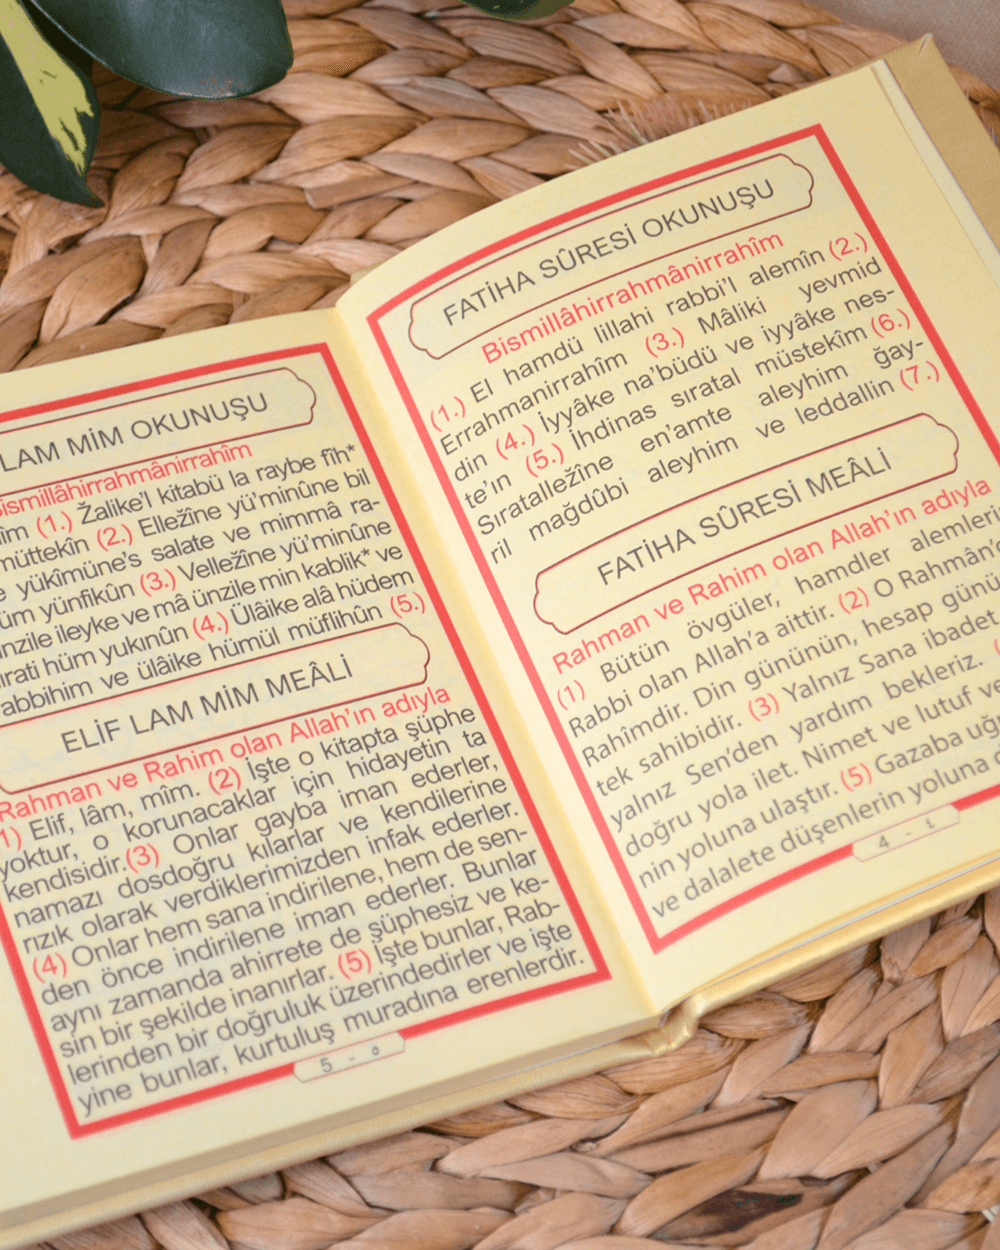 LAM MİM OKUNUŞU
Bismillâhirrahmânirrahîm
(1.) Żalike'l kitabü la raybe fîh*
müttekîn (2.) Elležîne yü'minûne bil
yükîmüne's salate ve mimmâ ra-
yünfikûn (3.) Velležîne yü'minûne
ünzile ileyke ve mâ ünzile min kablik* ve
hüm yukınûn (4.) Ülâike alâ hüdem
rabbihim ve ülâike hümül müflihûn (5.)
ELİF LAM MİM MEÂLİ
Rahman ve Rahim olan Allah'ın adıyla
1) Elif, lâm, mîm. (2) İşte o kitapta şüphe
yoktur, o korunacaklar için hidayetin ta
kendisidir.(3) Onlar gayba iman ederler,
namazı dosdoğru kılarlar ve kendilerine
rızık olarak verdiklerimizden infak ederler.
(4) Onlar hem sana indirilene, hem de sen-
den önce indirilene iman ederler. Bunlar
aynı zamanda ahirrete de şüphesiz ve ke-
sin bir şekilde inanırlar. (5) İşte bunlar, Rab-
lerinden bir doğruluk üzerindedirler ve işte
yine bunlar, kurtuluş muradına erenlerdir.
5 - ٥
FATİHA SÛRESİ OKUNUŞU
Bismillâhirrahmânirrahîm
(1.) El hamdü lillahi rabbi'l alemîn (2.)
Errahmanirrahîm (3.) Mâliki yevmid
din (4.) İyyâke na'büdü ve iyyâke nes-
te'ın (5.) İhdinas sıratal müstekîm (6.)
Sıratalležîne en'amte aleyhim ğay-
ril mağdûbi aleyhim ve leddallin (7.)
FATİHA SÛRESİ MEÂLİ
Rahman ve Rahim olan Allah'ın adıyla
(1) Bütün övgüler, hamdler alemleri
Rabbi olan Allah'a aittir. (2) O Rahmân'
Rahîmdir. Din gününün, hesap günü
tek sahibidir. (3) Yalnız Sana ibadet
yalnız Sen'den yardım bekleriz.
doğru yola ilet. Nimet ve lutuf ve
nin yoluna ulaştır. (5) Gazaba uğ
ve dalalete düşenlerin yoluna
4 - ٤